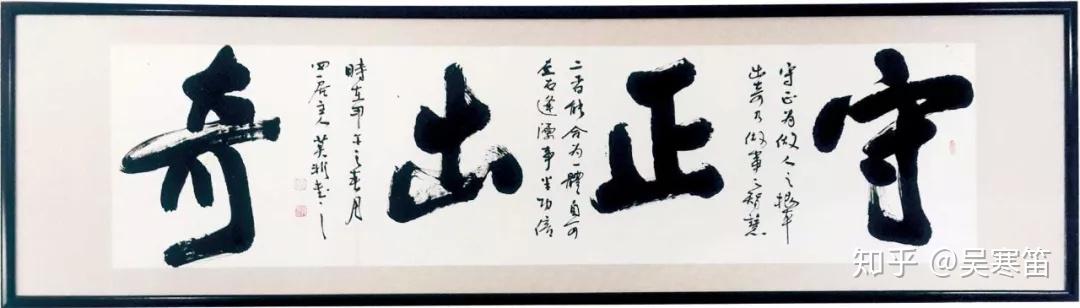 守正出奇
守正为做人之根本
出奇乃做事之智慧
二者能合为一體自可
左右逢源事半功倍
時在甲午之春月
主人
知乎 @吴寒笛